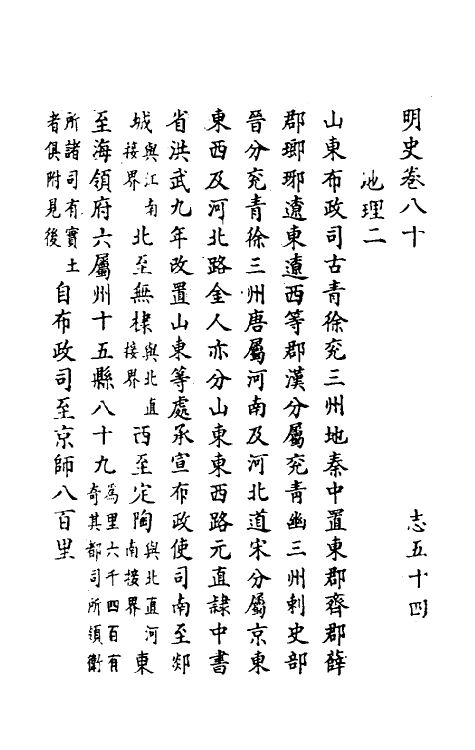 明史卷八十　志五十四
地理二
山東布政司古青徐兖三州地秦中置東郡齊郡薛
郡瑯琊遼東遼西等郡漢分屬兖青幽三州刺史部
晉分兖青徐三州唐屬河南及河北道宋分屬京東
東西及河北路金人亦分山東東西路元直隷中書
省洪武九年改置山東等處承宣布政使司南至郯
城與江南接界北至無棣與北直接界西至定陶與北直河南接界東
至海領府六屬州十五縣八十九為里六千四百有奇其都司所領衛
所諸司有實土者俱附見後自布政司至京師八百里